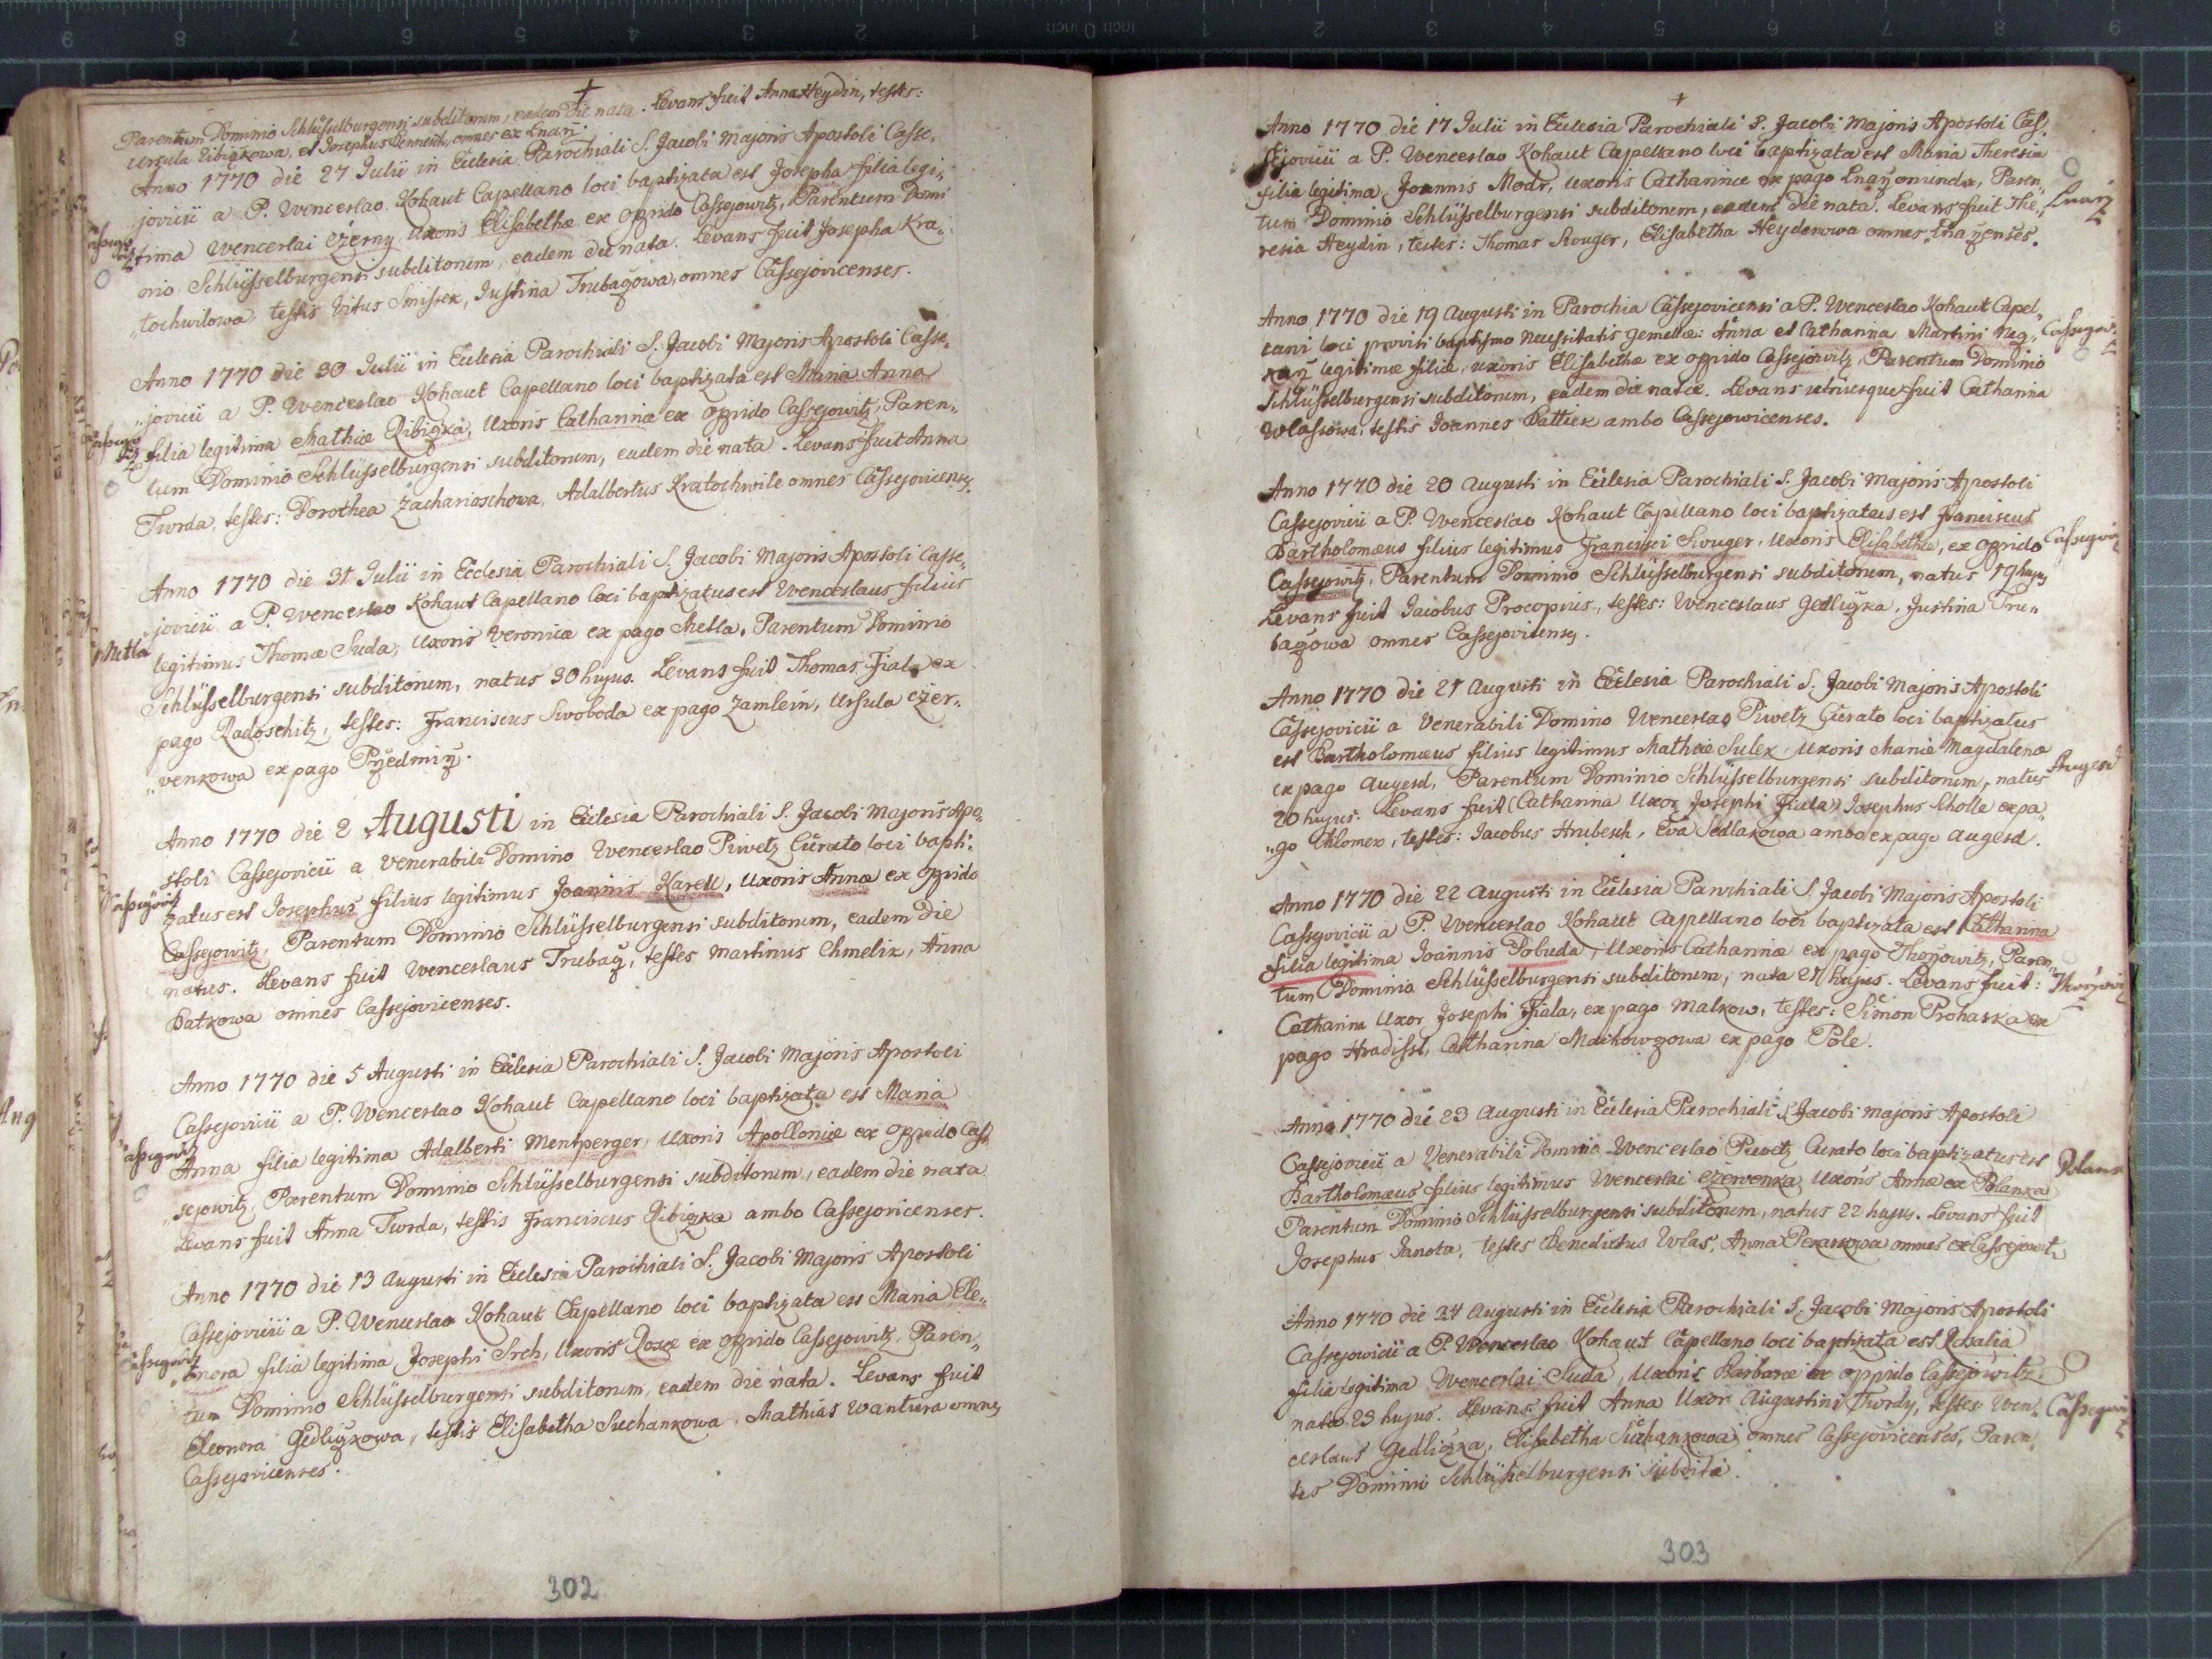 †
Parentum Dominio Schlüsselburgensi subditorum, eadem die nata. Levans fuit Anna Heydin, testes:
Ursula Ribizkowa, et Josephus omnes ex Lnarz.
Anno 1770 die 27 Julii in Ecclesia Parochiali S. Jacobi Majoris Apostoli Casse„
jovicii a P. Wenceslao Kohaut Capellano loci baptizata est Josepha filia legi„
tima Wenceslai Czerny uxoris Elisabethæ ex oppido Cassejowitz, Parentum Domi
nio Schlüsselburgensi subditorum, eadem die nata. Levans fuit Josepha Kra„
„tochwilowa, testis Vitus Smissek, Justina Trubaczowa, omnes Cassejovicenses.
Anno 1770 die 30 Julii in Ecclesia Parochiali S. Jacobi Majoris Apostoli Casse„
„jovicii a P. Wenceslao Kohaut Capellano loci baptizata est Maria Anna
filia legitima Mathiæ Ribizka, uxoris Catharinæ ex oppido Cassejowitz, Paren„
tum Dominio Schlüsselburgensi subditorum, eadem die nata. Levans fuit Anna
Twrda, testes: Dorothea Zacharioschowa, Adalbertus Kratochwile omnes Cassejovicenses.
Anno 1770 die 31 Julii in Ecclesia Parochiali S. Jacobi Majoris Apostoli Casse„
jovicii a P. Wenceslao Kohaut Capellano loci baptizatus est Wenceslaus filius
Metla
legitimus Thomæ Suda, uxoris Veronicæ ex pago Metla, Parentum Dominio
Schlüsselburgensi subditorum, natus 30 hujus. Levans fuit Thomas Fiala ex
pago Radoschitz, testes: Franciscus Swoboda ex pago Zamlein, Ursula Czer„
„venkowa ex pago Przedmirz.
Anno 1770 die 2 Augusti in Ecclesia Parochiali S. Jacobi Majoris Apo„
stoli Cassejovicii a Venerabili Domino Wenceslao Piwetz Curato loci bapti„
zatus est Josephus filius legitimus Joannis Karell, uxoris Annæ ex oppido
Cassejowitz, Parentum Dominio Schlüsselburgensi subditorum, eadem die
natus. Levans fuit Wenceslaus Trubacz, testes Martinus Chmelik, Anna
Batkowa omnes Cassejovicenses.
Anno 1770 die 5 Augusti in Ecclesia Parochiali S. Jacobi Majoris Apostoli
Cassejovicii a P. Wenceslao Kohaut Capellano loci baptizata est Maria
Anna filia legitima Adalberti Mentperger, uxoris Apolloniæ ex oppido Cas„
„sejowitz, Parentum Dominio Schlüsselburgensi subditorum, eadem die nata
Levans fuit Anna Twrda, testis Franciscus Ribizka ambo Cassejovicenses.
Anno 1770 die 13 Augusti in Ecclesia Parochiali S. Jacobi Majoris Apostoli
Cassejovicii a P. Wenceslao Kohaut Capellano loci baptizata est Maria Ele„
„onora filia legitima Josephi Srch, uxoris Rosæ ex oppido Cassejowitz, Paren„
tum Dominio Schlüsselburgensi subditorum, eadem die nata. Levans fuit
Eleonora Gedliczkowa, testis Elisabetha Suchankowa, Mathias Wantura omnes
Cassejovicenses.
302
†
Anno 1770 die 17 Julii in Ecclesia Parochiali S. Jacobi Majoris Apostoli Cas„
sejovicii a P. Wenceslao Kohaut Capellano loci baptizata est Maria Theresia
filia legitima Joannis Modr, uxoris Catharinæ ex pago Lnarz oriunda, Paren„
tum Dominio Schlüsselburgensi subditorum, eadem die nata. Levans fuit The„
Lnarz
resia Heydin, testes: Thomas Swuger, Elisabetha Heydenowa omnes Lnarzenses.
Anno 1770 die 19 Augusti in Parochia Cassejovicensi a P. Wenceslao Kohaut Capel„
lani loci proviti baptismo necessitatis gemellæ: Anna et Catharina Martini Neg„
legitimæ filiæ, uxoris Elisabethæ ex oppido Cassejowitz, Parentum Dominio
Schlüsselburgensi subditorum, eadem die natæ. Levans utriusque fuit Catharina
Wlassowa, testis Joannes Battiek ambo Cassejowicenses.
Anno 1770 die 20 Augusti in Ecclesia Parochiali S. Jacobi Majoris Apostoli
Cassejovicii a P. Wenceslao Kohaut Capellano loci baptizatus est Franciscus
Bartholomæus filius legitimus Francisci Swuger, uxoris Elisabethæ, ex oppido
Cassejowitz, Parentum Dominio Schlüsselburgensi subditorum, natus 19 hujus
Levans fuit Jacobus Procopius, testes: Wenceslaus Gedliczka, Justina Tru„
baczowa omnes Cassejovicenses.
Anno 1770 die 21 Augusti in Ecclesia Parochiali S. Jacobi Majoris Apostoli
Cassejovicii a Venerabili Domino Wenceslao Piwetz Curato loci baptizatus
est Bartholomæus filius legitimus Mathiæ Sulek, uxoris Mariæ Magdalenæ
ex pago Augesd, Parentum Dominio Schlüsselburgensi subditorum, natus
Augesd
20 hujus. Levans fuit (Catharina uxor Josephi Fiala) Josephus Scholle ex pa„
„go Chlomek, testes: Jacobus Hrubesch, Eva Sedlakowa ambo ex pago Augesd.
Anno 1770 die 22 Augusti in Ecclesia Parochiali S. Jacobi Majoris Apostoli
Cassejovicii a P. Wenceslao Kohaut Capellano loci baptizata est Catharina
filia legitima Joannis Pobuda, uxoris Catharinæ ex pago Thorzowitz, Paren„
tum Dominio Schlüsselburgensi subditorum, nata 21 hujus. Levans fuit:
Catharina uxor Josephi Fiala, ex pago Malkow, testes: Simon Prohaska ex
pago Hradisst, Catharina Maikowzowa ex pago Pole.
Anno 1770 die 23 Augusti in Ecclesia Parochiali S. Jacobi Majoris Apostoli
Cassejovicii a Venerabili Domino Wenceslao Piwetz Curato loci baptizatus est
Bartholomæus filius legitimus Wenceslai Czerwenka, uxoris Annæ ex Polanka
Parentum Dominio Schlüsselburgensi subditorum, natus 22 hujus. Levans fuit
Josephus Janota, testes Benedictus Wlas, Anna Pekarkowa omnes ex Cassejowitz
Anno 1770 die 24 Augusti in Ecclesia Parochiali S. Jacobi Majoris Apostoli
Cassejowicii a P. Wenceslao Kohaut Capellano loci baptizata est Rosalia
filia legitima Wenceslai Suda, uxoris Barbaræ ex oppido Cassejowitz.
nata 23 hujus. Levans fuit Anna uxor Augustini Twrdy, testes Wen„
ceslaus Gedliczka, Elisabetha Suchankowa, omnes Cassejovicenses, Paren„
tes Dominio Schlüsselburgensi subditi.
303